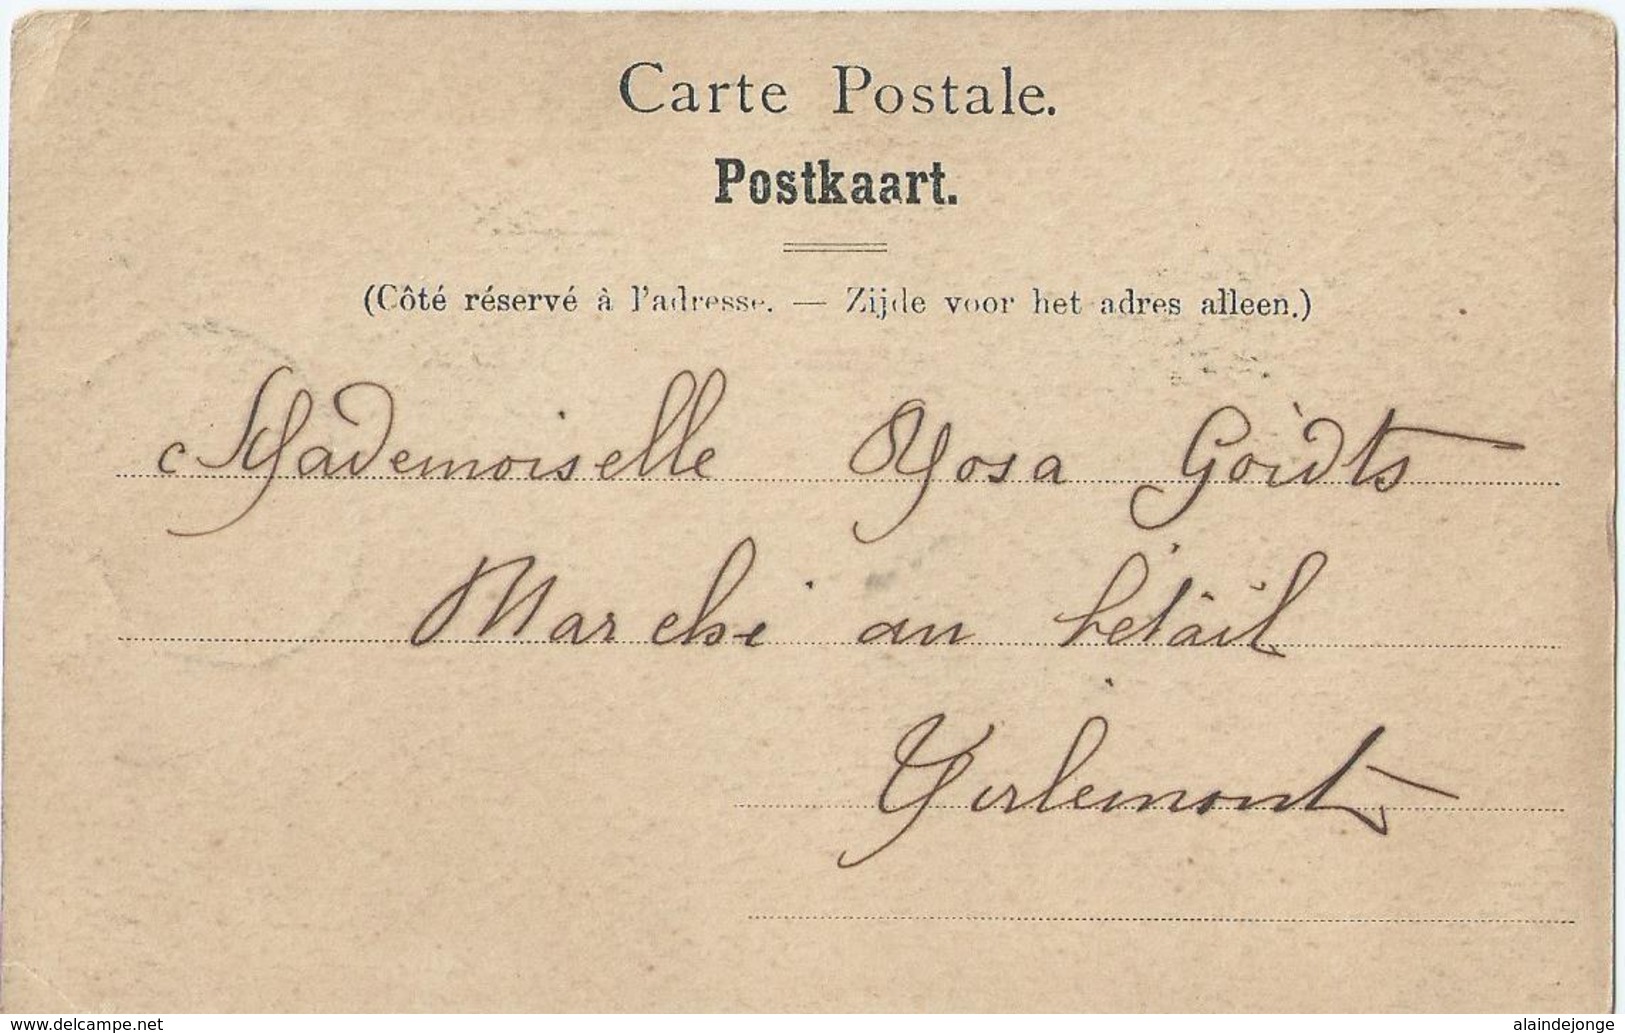 Carte Postale.
Postkaart.
(Côté réservé à l'adresse. — Zijde voor het adres alleen.)
Mademoiselle Rosa Goidts
Marché au bétail
Tirlemont
www.delcampe.net
alaindejonge